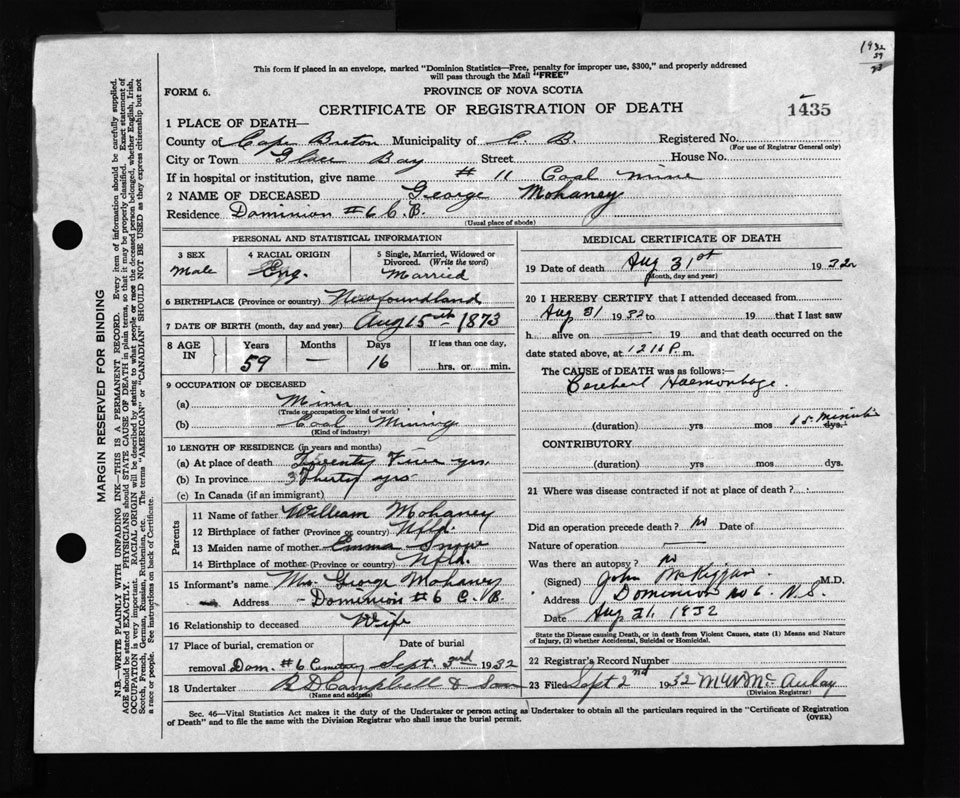 1932
39
23
This form if placed in an envelope, marked "Dominion Statistics—Free, penalty for improper use, $300," and properly addressed
will pass through the Mail "FREE"
FORM 6.
PROVINCE OF NOVA SCOTIA
CERTIFICATE OF REGISTRATION OF DEATH
1435
1 PLACE OF DEATH—
County of Cape Breton Municipality of C. B. Registered No.
(For use of Registrar General only)
City or Town Glace Bay Street House No.
If in hospital or institution, give name # 11 Coal mine
2 NAME OF DECEASED George Mohaney
Residence Dominion #6 C.B.
(Usual place of abode)
PERSONAL AND STATISTICAL INFORMATION
3 SEX
Male
4 RACIAL ORIGIN
Eng.
5 Single, Married, Widowed or
Divorced. (Write the word)
Married
6 BIRTHPLACE (Province or country) Newfoundland
7 DATE OF BIRTH (month, day and year) Aug 15th 1873
8 AGE IN
Years Months Days If less than one day,
59 — 16 hrs. or min.
9 OCCUPATION OF DECEASED
(a) Miner
(Trade or occupation or kind of work)
(b) Coal Mining
(Kind of industry)
10 LENGTH OF RESIDENCE (in years and months)
(a) At place of death Twenty Five yrs.
(b) In province 3 Thirty yrs
(c) In Canada (if an immigrant)
Parents
11 Name of father William Mohaney
12 Birthplace of father (Province or country) Nfld.
13 Maiden name of mother Emma Snow
14 Birthplace of mother (Province or country) Nfld.
15 Informant's name Mrs. George Mohaney
Address – Dominion #6 C. B.
16 Relationship to deceased Wife
17 Place of burial, cremation or Date of burial
removal Dom. #6 Cemetery Sept. 3rd 1932
18 Undertaker B D Campbell & Son
(Name and address)
MEDICAL CERTIFICATE OF DEATH
19 Date of death Aug 31st 1932
(Month, day and year)
20 I HEREBY CERTIFY that I attended deceased from
Aug 31 1932 to 19 that I last saw
h alive on 19 and that death occurred on the
date stated above, at 12 10 P. m.
The CAUSE of DEATH was as follows:—
Cerebral Haemorrhage.
(duration) yrs mos 15 Minutes dys.
CONTRIBUTORY
(duration) yrs mos dys.
21 Where was disease contracted if not at place of death?
Did an operation precede death? no Date of
Nature of operation —
Was there an autopsy? no
(Signed) John McKiggan M.D.
Address Dominion no 6. N.S.
Date Aug 31 1932
State the Disease causing Death, or in death from Violent Causes, state (1) Means and Nature
of Injury, (2) whether Accidental, Suicidal or Homicidal.
22 Registrar's Record Number
23 Filed Sept 2nd 1932 McAulay
(Division Registrar)
Sec. 46—Vital Statistics Act makes it the duty of the Undertaker or person acting as Undertaker to obtain all the particulars required in the "Certificate of Registration
of Death" and to file the same with the Division Registrar who shall issue the burial permit.
(OVER)
MARGIN RESERVED FOR BINDING
N.B.—WRITE PLAINLY WITH UNFADING INK—THIS IS A PERMANENT RECORD. Every item of information should be carefully supplied.
AGE should be stated EXACTLY. PHYSICIANS should STATE CAUSE OF DEATH in plain terms, so that it may be properly classified. Exact statement of
OCCUPATION is very important. RACIAL ORIGIN will be described by stating to what people or race the deceased person belonged, whether English, Irish,
Scotch, French, German, Russian, Ruthenian, etc. The terms "AMERICAN" or "CANADIAN" SHOULD NOT BE USED as they express citizenship but not
a race or people. See instructions on back of Certificate.